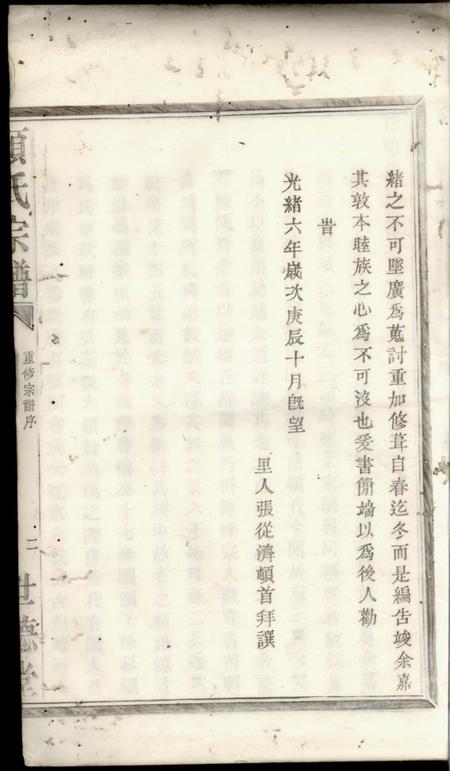 緒之不可墜廣為蒐討重加修葺自春迄冬而是編告竣余嘉
其敦本睦族之心為不可沒也爰書簡端以為後人勸
旹
光緒六年歲次庚辰十月既望
里人張從濟頓首拜譔
氏宗譜
重修宗譜序
二
世德堂